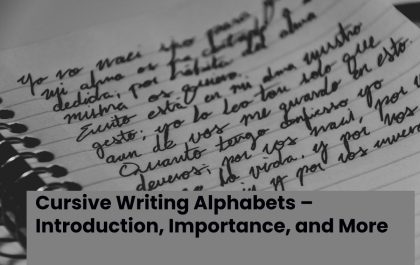 Yo no naci sino para
mi alma os ha
por hábito del alma
os quiero.
Escrito está en mi alma vuestro
gesto; yo lo leo tan solo que
aun de vos me guardo en esto.
Quanto tengo confieso yo
deveros; por vos naci, por
la vida, y por vos
y por vos
Cursive Writing Alphabets –
Introduction, Importance, and More